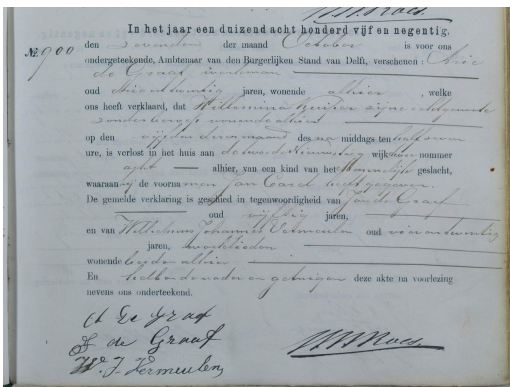 In het jaar een duizend acht honderd vijf en negentig,
No. 900 den zevenden der maand October is voor ons
ondergeteekende, Ambtenaar van den Burgerlijken Stand van Delft, verschenen: Arie
de Graaf, werkman
oud jaren, wonende alhier, welke
ons heeft verklaard, dat Willemina zijne echtgenoote
zonder beroep wonende alhier
op den vijfden dezer maand des na middags ten half zeven
ure, is verlost in het huis aan de wijk nummer
acht alhier, van een kind van het Mannelijk geslacht,
waaraan hij de voornamen Jan Carel heeft gegeven.
De gemelde verklaring is geschied in tegenwoordigheid van Jan de Graaf
oud vijftig jaren,
en van Wilhelmus Johannes Vermeulen oud vier en twintig
jaren, werklieden
wonende beiden alhier
En hebben de vader en getuigen deze akte na voorlezing
nevens ons onderteekend.
A de Graaf
J de Graaf
W. J. Vermeulen